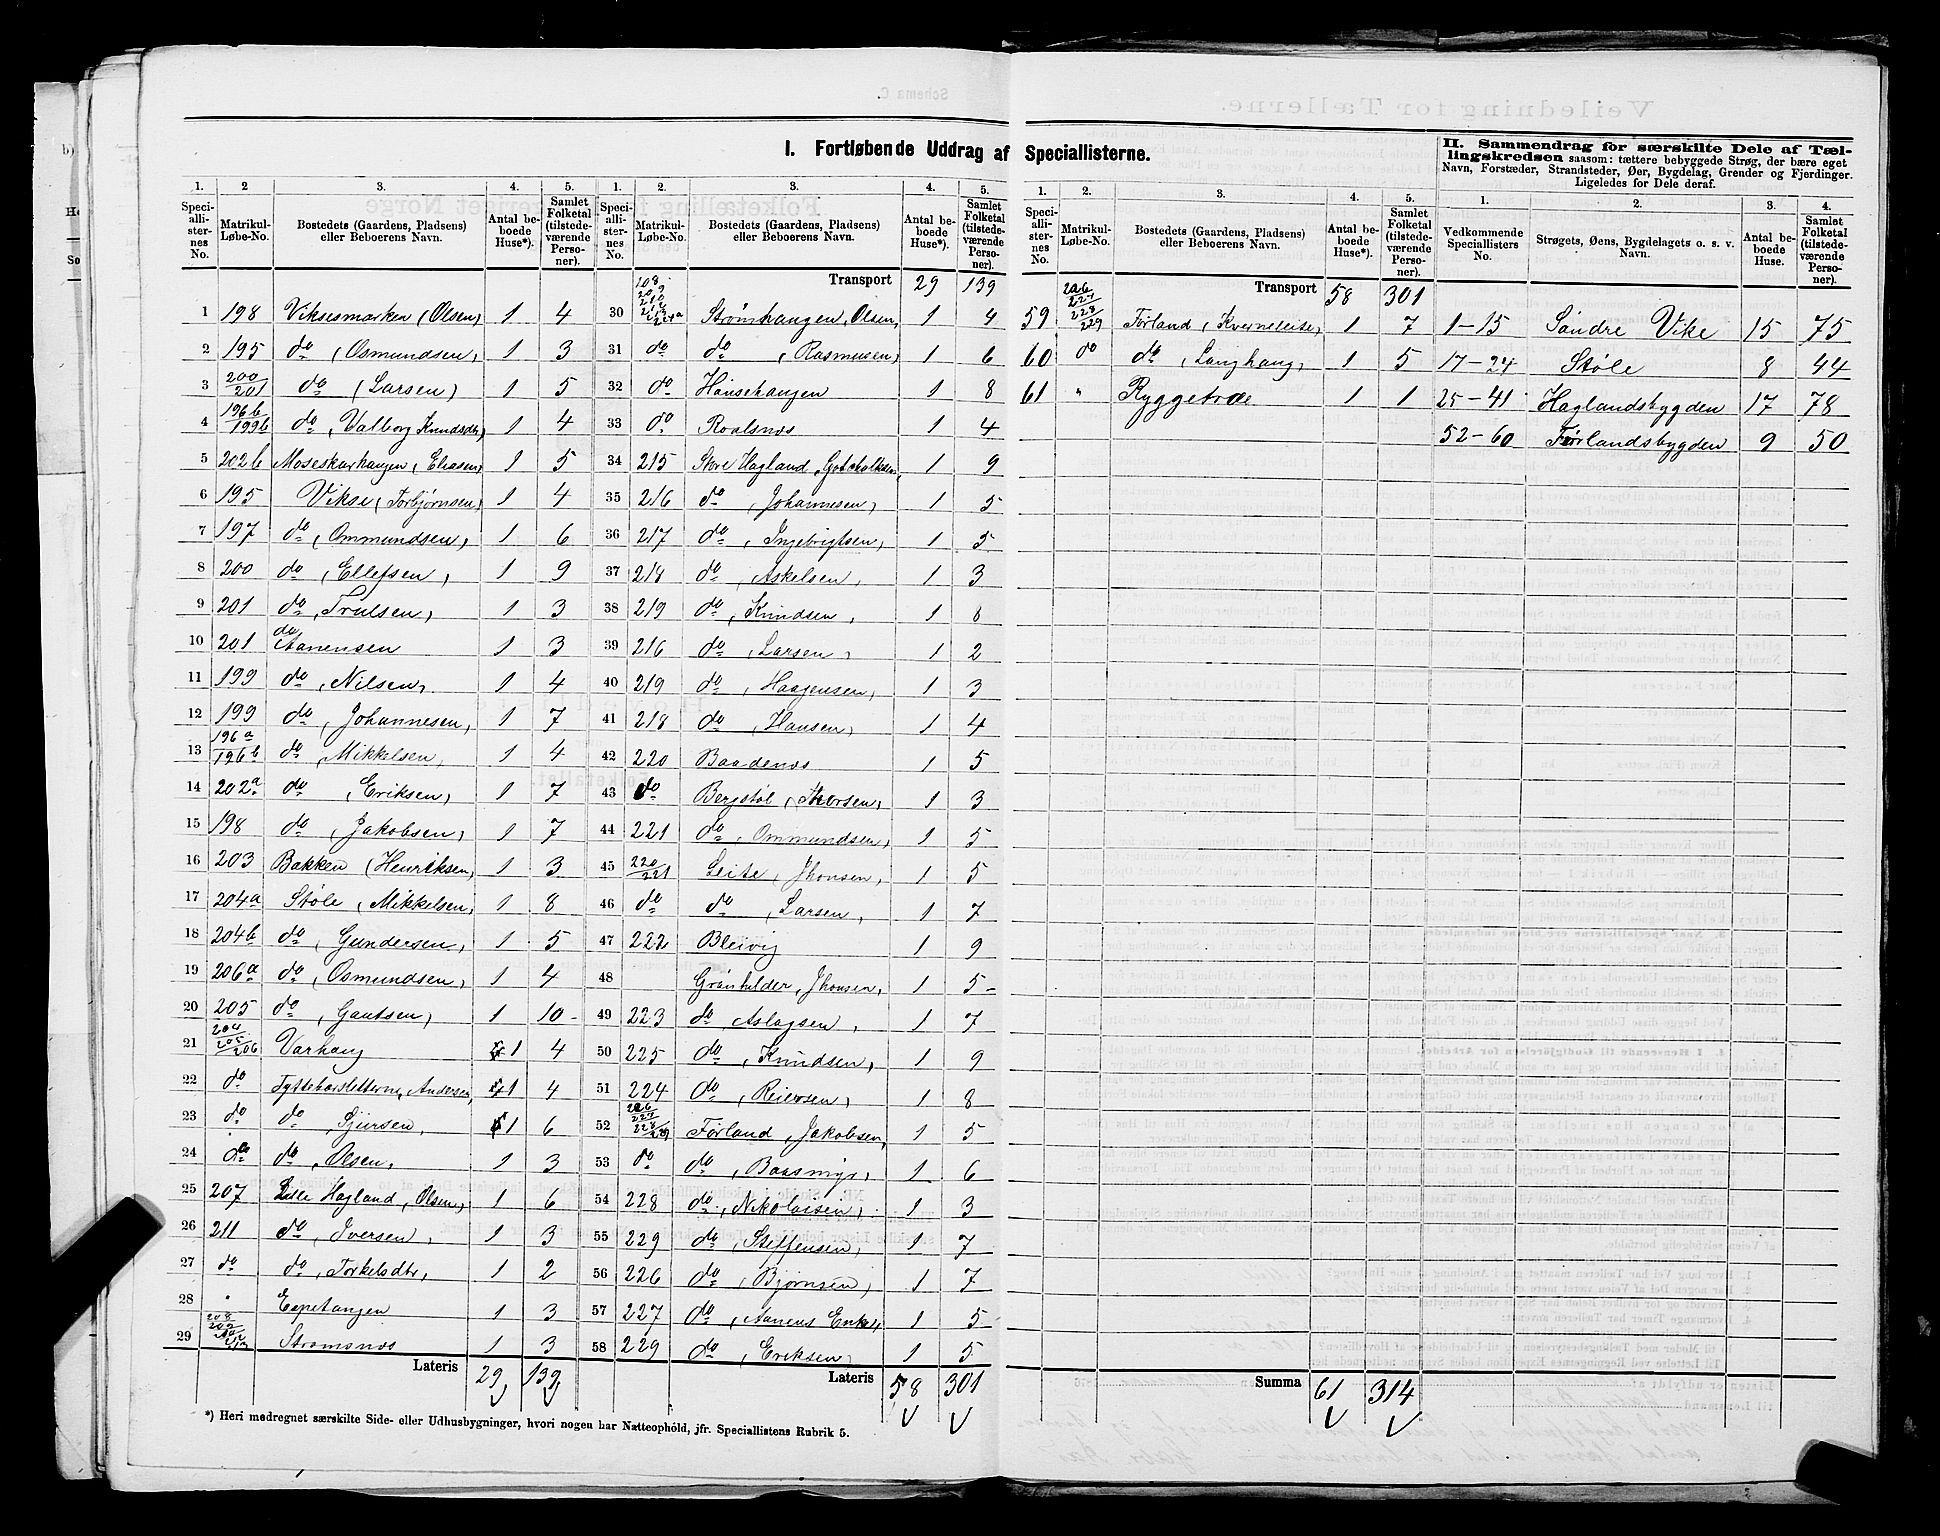 I. Fortløbende Uddrag af Speciallisterne.
1. 2 3. 4. 5.
Speciallisternes No. Matrikul-Løbe-No. Bostedets (Gaardens, Pladsens) eller Beboerens Navn. Antal beboede Huse*). Samlet Folketal (tilstedeværende Personer).
1 198 Viksesmarken (Olsen) 1 4
2 195 do (Osmundsen) 1 3
3 200/201 do (Larsen) 1 5
4 196b/199b do, Valborg Knudsdtr) 1 4
5 202b Moseskarhaugen, Eliasen) 1 5
6 195 Vikse (Torbjørnsen) 1 4
7 197 do (Ommundsen) 1 6
8 200 do, Ellefsen, 1 9
9 201 do, Trulsen, 1 3
10 201 do Aanensen 1 3
11 199 do, Nilsen, 1 4
12 199 do, Johannesen, 1 7
13 196a/196b do, Mikkelsen, 1 4
14 202a do, Eriksen, 1 7
15 198 do, Jakobsen, 1 7
16 203 Bakken (Henriksen, 1 3
17 204a Støle, Mikkelsen, 1 8
18 204b do, Gundersen, 1 5
19 206a do, Osmundsen, 1 4
20 205 do, Gautsen, 1 10
21 204/205/206 Varhaug 1 4
22 do Tyttebærsletterne, Andersen, 1 4
23 do do, Sjursen, 1 6
24 do do, Olsen, 1 3
25 207 Lille Hagland, Olsen, 1 6
26 211 do, Iversen, 1 3
27 do do, Torkelsdtr, 1 2
28 Espetangen 1 3
29 Strømsnes 1 3
Lateris 29 139
*) Heri medregnet særskilte Side- eller Udhusbygninger, hvori nogen har Natteophold, jfr. Speciallistens Rubrik 5.
1. 2. 3. 4. 5.
Speciallisternes No. Matrikul-Løbe-No. Bostedets (Gaardens, Pladsens) eller Beboerens Navn. Antal beboede Huse*). Samlet Folketal (tilstedeværende Personer).
Transport 29 139
30 Strømhaugen, Olsen, 1 4
31 do do, Rasmusen, 1 6
32 do Hansehaugen 1 8
33 do Roalsnes 1 4
34 215 Store Hagland, Gotskalksen, 1 9
35 216 do, Johannesen, 1 5
36 217 do, Ingebrigtsen, 1 5
37 218 do, Askelsen, 1 3
38 219 do, Knudsen, 1 8
39 216 do, Larsen, 1 2
40 219 do, Haagensen, 1 3
41 218 do, Hansen, 1 4
42 220 Baadenes 1 5
43 do Bergstøl, 1 3
44 221 do, Ommundsen, 1 5
45 220/221 Leite, Jhonsen, 1 5
46 do do, Larsen, 1 7
47 222 Bleivig 1 9
48 Grønhelder, Jhonsen, 1 5
49 223 do, Aslagsen, 1 7
50 225 do, Knudsen, 1 9
51 224 do, Reiersen, 1 8
52 226/227/228/229 Førland, Jakobsen, 1 5
53 do do, Baasmyr, 1 6
54 228 do, Nikolaisen, 1 3
55 229 do, Steffensen, 1 7
56 226 do, Bjørnsen, 1 7
57 227 do, Aanens Enke, 1 5
58 229 do, Eriksen, 1 5
Lateris 58 301
1. 2. 3. 4. 5.
Speciallisternes No. Matrikul-Løbe-No. Bostedets (Gaardens, Pladsens) eller Beboerens Navn. Antal beboede Huse*). Samlet Folketal (tilstedeværende Personer).
Transport 58 301
59 226/227/228/229 Førland, Kverneleite, 1 7
60 do do, Langhaug, 1 5
61 " Ryggetræe 1 1
Summa 61 314
II. Sammendrag for særskilte Dele af Tællingskredsen saasom: tættere bebyggede Strøg, der bære eget Navn, Forstæder, Strandsteder, Øer, Bygdelag, Grender og Fjerdinger. Ligeledes for Dele deraf.
1. 2. 3. 4.
Vedkommende Speciallisters No. Strøgets, Øens, Bygdelagets o. s. v. Navn. Antal beboede Huse. Samlet Folketal (tilstedeværende Personer).
1-15 Søndre Vike 15 75
17-24 Støle 8 44
25-41 Haglandsbygden 17 78
52-60 Førlandsbygden 9 50